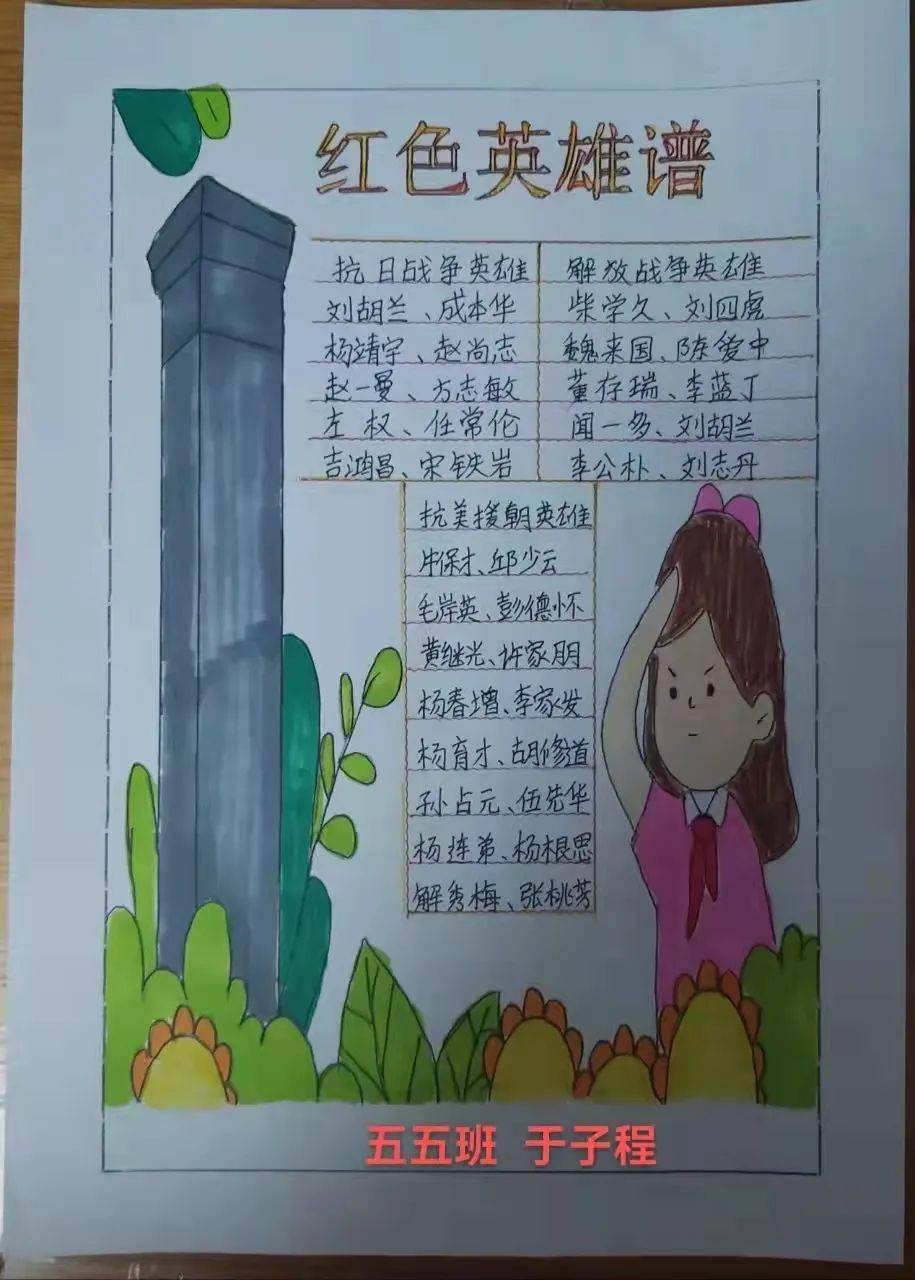 红色英雄谱
抗日战争英雄
刘胡兰、成本华
杨靖宇、赵尚志
赵一曼、方志敏
左权、任常伦
吉鸿昌、宋铁岩
解放战争英雄
柴学久、刘四虎
魏来国、陈爱中
董存瑞、李蓝丁
闻一多、刘胡兰
李公朴、刘志丹
抗美援朝英雄
牛保才、邱少云
毛岸英、彭德怀
黄继光、许家朋
杨春增、李家发
杨育才、胡修道
孙占元、伍先华
杨连弟、杨根思
解秀梅、张桃芳
五五班 于子程